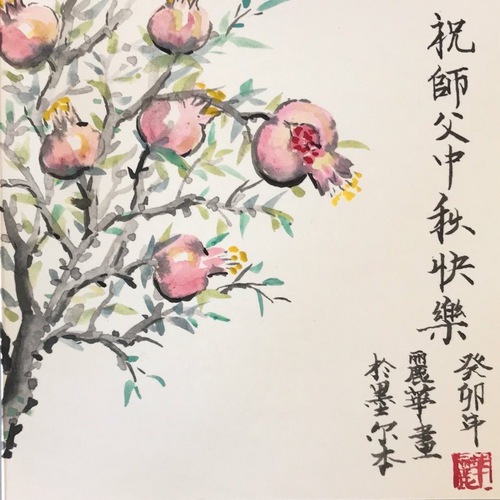 祝師父中秋快樂
癸卯年
麗華畫
於墨尔本